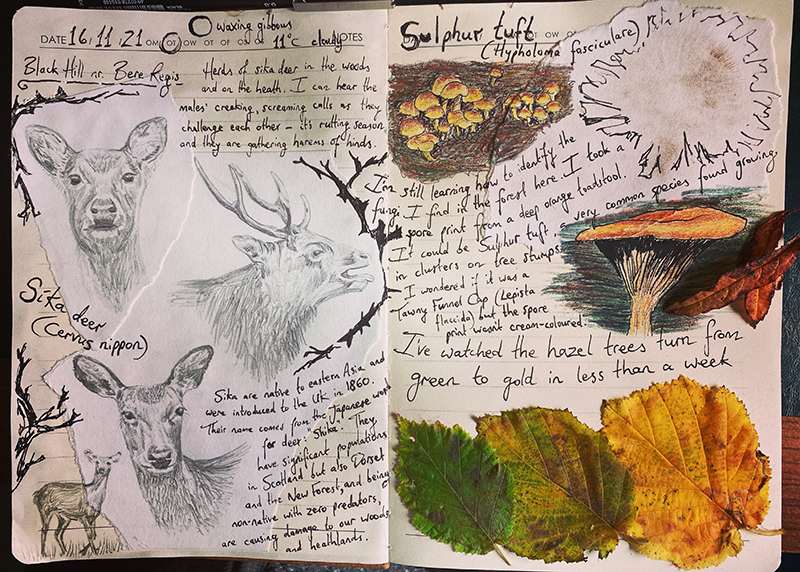 waxing gibbous
DATE 16/11/21 11°C cloudy NOTES
Black Hill nr. Bere Regis
Herds of sika deer in the woods
and on the heath. I can hear the
males' creaking, screaming calls as they
challenge each other - it's rutting season,
and they are gathering harems of hinds.
Sika deer
(Cervus nippon)
Sika are native to eastern Asia and
were introduced to the UK in 1860.
Their name comes from the Japanese word
for deer: "Shika". They
have significant populations
in Scotland but also Dorset
and the New Forest, and being
non-native with zero predators,
are causing damage to our woods
and heathlands.
Sulphur tuft
(Hypholoma fasciculare)
I'm still learning how to identify the
fungi I find in the forest here. I took a
spore print from a deep orange toadstool.
It could be Sulphur tuft, very common species found growing
in clusters on tree stumps.
I wondered if it was a
Tawny Funnel Cap (Lepista
flaccida) but the spore
print wasn't cream-coloured.
I've watched the hazel trees turn from
green to gold in less than a week